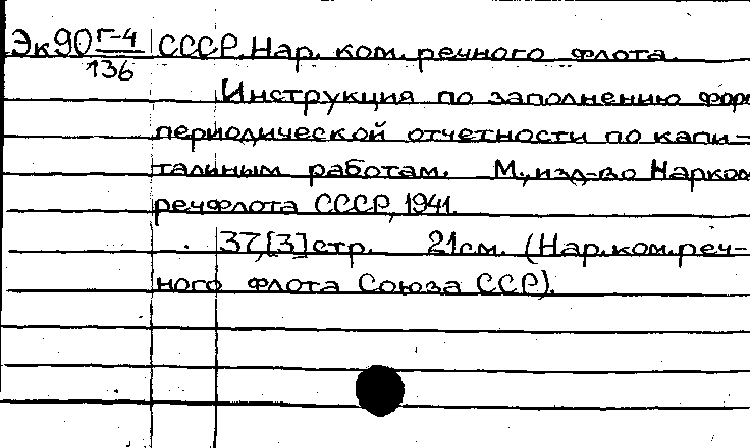 Эк90 Г-4 СССР. Нар. ком. речного флота.
136
Инструкция по заполнению форм
периодической отчетности по капи-
талиным работам. М., изд-во Нарком
речфлота СССР, 1941.
37,[3] стр. 21см. (Нар.ком.реч-
ного флота Союза ССР).